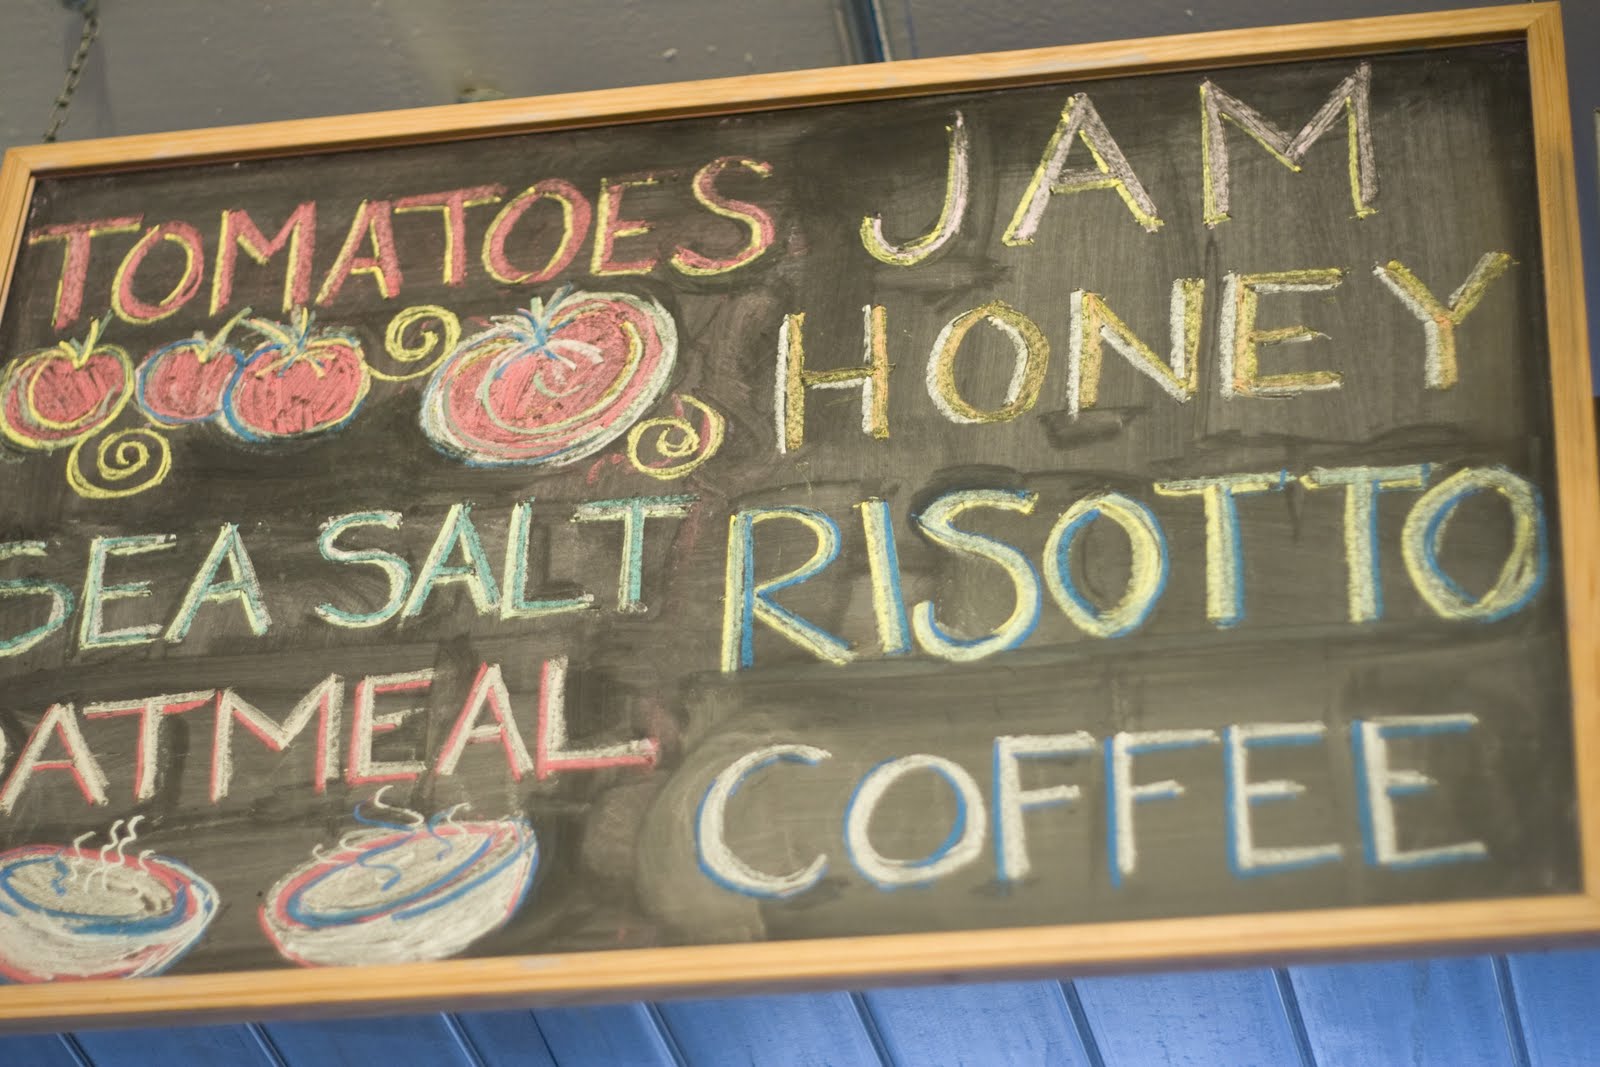 TOMATOES
SEA SALT
OATMEAL
JAM
HONEY
RISOTTO
COFFEE